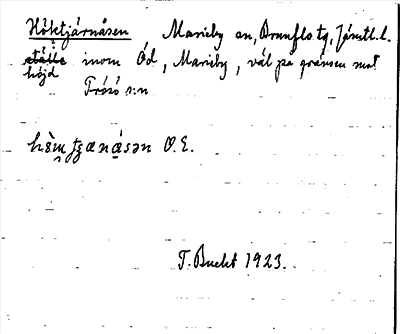 Höktjärnåsen, Marieby sn, Brunflo tg, Jämtl. l.
ställe inom Od, Marieby, väl på gränsen mot
höjd
Frösö s:n
O. E.
T. Bucht 1923.